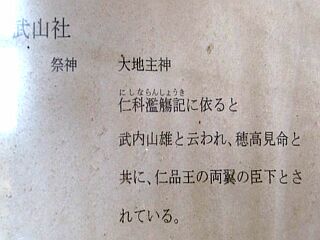 武山社
祭神 大地主神
にしならんしょうき
仁科濫觴記に依ると
武内山雄と云われ、穂高見命と
共に、仁品王の両翼の臣下とさ
れている。